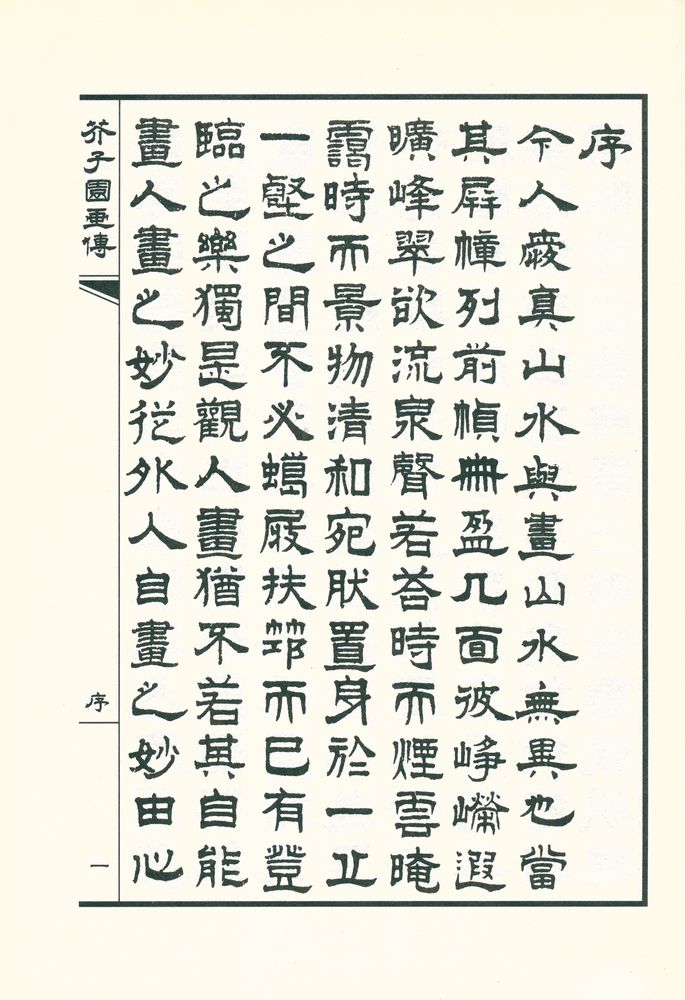 序
今人愛真山水與畫山水無異也當
其屏幛列前幀冊盈几面彼崢嶸遐
曠峰翠欲流泉聲若荅時而煙雲晻
靄時而景物清和宛肰置身於一丘
一壑之間不必蠟屐扶筇而已有登
臨之樂獨是觀人畫猶不若其自能
畫人畫之妙從外入自畫之妙由心
芥子園畫傳
序
一